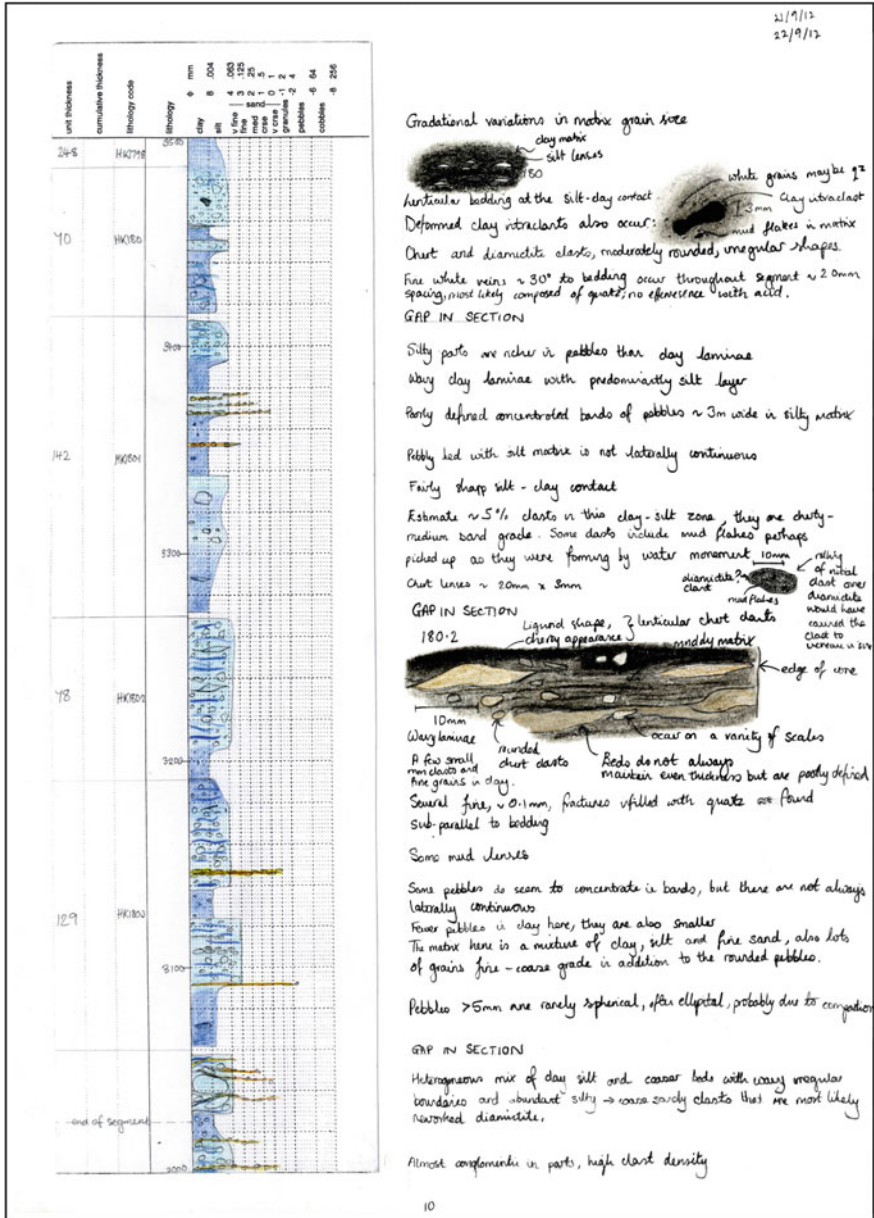 21/9/12
22/9/12
unit thickness
cumulative thickness
lithology code
lithology
φ mm
clay 8 .004
silt
v fine 4 .063
fine 3 .125
med 2 .25
crse 1 .5
v crse 0 1
sand
granules -1 2
-2 4
pebbles
-6 64
cobbles
-8 256
3500
248
90
3400
142
HK1801
3300
78
HK1802
3200
129
3100
end of segment
3000
Gradational variations in matrix grain size
clay matrix
silt lenses
180
Lenticular bedding at the silt-clay contact
white grains maybe qz
Clay intraclast
3mm
mud flakes in matrix
Deformed clay intraclasts also occur:
Chert and diamictite clasts, moderately rounded, irregular shapes.
Fine white veins ~30° to bedding occur throughout segment ~20mm
spacing, most likely composed of quatz, no effervesence with acid.
GAP IN SECTION
Silty parts are richer in pebbles than clay laminae
Wavy clay laminae with predominantly silt layer
Poorly defined concentrated bands of pebbles ~3m wide in silty matrix
Pebbly bed with silt matrix is not laterally continuous
Fairly sharp silt-clay contact
Estimate ~5% clasts in this clay-silt zone, they are cherty-
medium sand grade. Some clasts include mud flakes perhaps
picked up as they were forming by water movement
10mm
diamictite?
clast
mud flakes
rolling
of initial
clast over
diamictite
would have
caused the
clast to
increase in size
Chert lenses ~20mm x 3mm
GAP IN SECTION
180.2
Liquid shape,
cherty appearance
} lenticular chert clasts
muddy matrix
edge of core
10mm
Wavy laminae
A few small
mm clasts and
fine grains in clay.
rounded
chert clasts
occur on a variety of scales
Beds do not always
maintain even thickness but are poorly defined
Several fine, ~0.1mm, fractures infilled with quatz found
sub-parallel to bedding
Some mud lenses
Some pebbles do seem to concentrate in bands, but there are not always
laterally continuous
Fewer pebbles in clay here, they are also smaller
The matrix here is a mixture of clay, silt and fine sand, also lots
of grains fine-coarse grade in addition to the rounded pebbles.
Pebbles >5mm are rarely spherical, often elliptal, probably due to compaction
GAP IN SECTION
Heterogeneous mix of clay silt and coarser beds with wavy irregular
boundaries and abundant silty → coarse sandy clasts that are most likely
reworked diamictite.
Almost conglomeritic in parts, high clast density
10